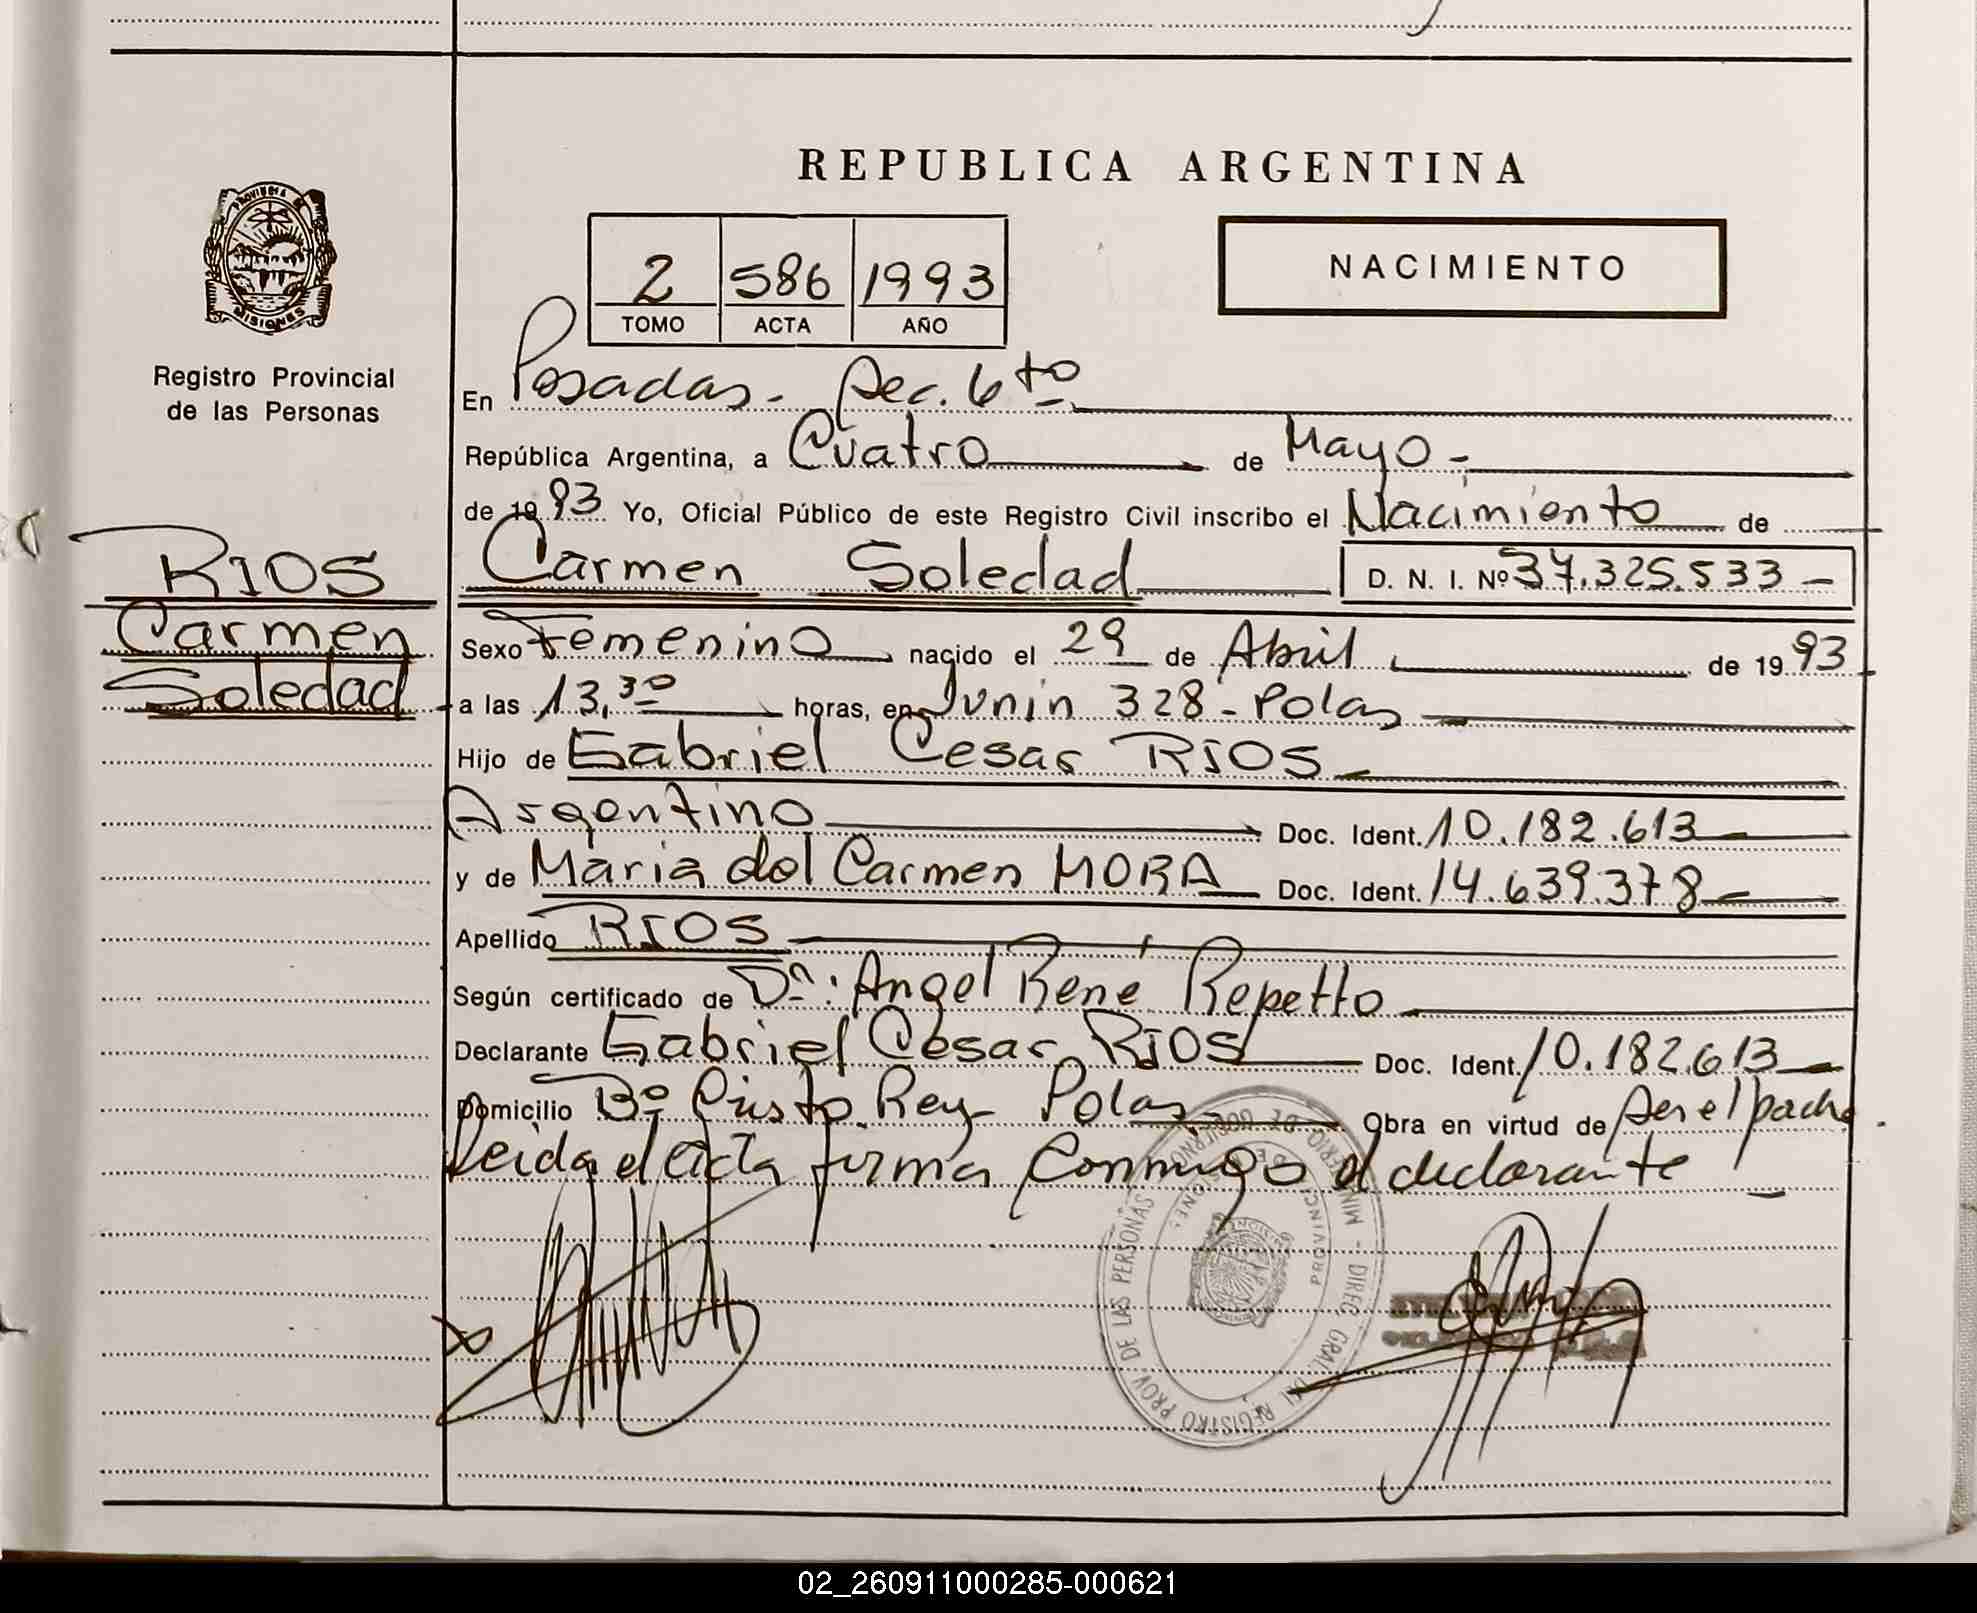 REPUBLICA ARGENTINA
PROVINCIA DE
MISIONES
Registro Provincial
de las Personas
2 586 1993
TOMO ACTA AÑO
NACIMIENTO
En Posadas. Sec. 6to
República Argentina, a Cuatro de Mayo -
de 1993 Yo, Oficial Público de este Registro Civil inscribo el Nacimiento de
RIOS
Carmen
Soledad
Carmen Soledad D. N. I. Nº 37.325.533 -
Sexo Femenino nacido el 29 de Abril de 1993
a las 13,30 horas, en Junin 328 - Pdas
Hijo de Gabriel Cesar RIOS
Argentino Doc. Ident. 10.182.613
y de Maria del Carmen MORA Doc. Ident. 14.639.378
Apellido RIOS
Según certificado de Dr: Angel René Repetto
Declarante Gabriel Cesar RIOS Doc. Ident. 10.182.613
Domicilio Bº Cristo Rey - Pdas - Obra en virtud de ser el padre
Leida el acta firma conmigo el declarante
MINISTERIO DE GOBIERNO - DIREC. GRAL. DEL REGISTRO PROV. DE LAS PERSONAS
PROVINCIA DE MISIONES
02_260911000285-000621